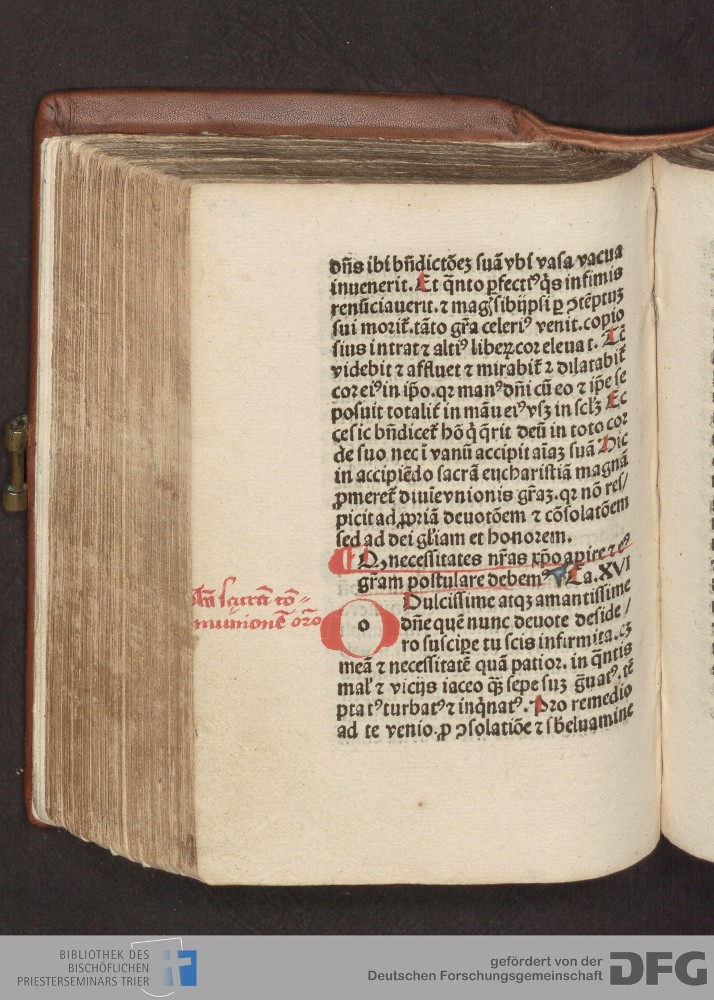 dñs ibi bñdictõeꝫ suã vbi vasa vacua
inuenerit. Et q̃nto ꝑfectiꝰ q̇s infimis
renũciauerit. ⁊ mag̃ sibijpsi ꝑ ↄtẽptuꝫ
sui morit̃. tãto gr̃a celeriꝰ venit. copio
sius intrat ⁊ altiꝰ liberꝝ cor eleuat. Tẽ
videbit ⁊ affluet ⁊ mirabit̃ ⁊ dilatabit̃
cor eiꝰ in ip̃o. qꝛ manꝰ dñi cũ eo ⁊ ip̃e se
posuit totalit̃ in mãu eiꝰ vsꝫ in scl̃ꝫ Ec
ce sic bñdicet̃ hõ q̇ q̃rit deũ in toto cor
de suo nec ĩ vanũ accipit aĩaꝫ suã Hic
in accipiẽdo sacrã eucharistiã magnã
ꝓmeret̃ diuĩe vnionis gr̃aꝫ. qꝛ nõ res/
picit ad ꝓpriã deuotõem ⁊ cõsolatõem
sed ad dei gl̃iam et honorem.
¶ Qꝫ necessitates nr̃as xp̃o apire ⁊ eꝰ
gr̃am postulare debemꝰ Ca. XVI
Añ sacrã cõ-
munionẽ orõ
O Dulcissime atqꝫ amantissime
dñe quẽ nunc deuote deside/
ro suscipe tu scis infirmita. cꝫ
meã ⁊ necessitatẽ quã patior. in q̃ntis
mal̃ ⁊ vicijs iaceo qꝫ̃ sepe suꝫ g̃uatꝰ. tẽ
ptatꝰ turbatꝰ ⁊ inq̇natꝰ. Pro remedio
ad te venio. ꝓ ↄsolatiõe ⁊ sbeluamine
BIBLIOTHEK DES
BISCHÖFLICHEN
PRIESTERSEMINARS TRIER
gefördert von der
Deutschen Forschungsgemeinschaft
DFG